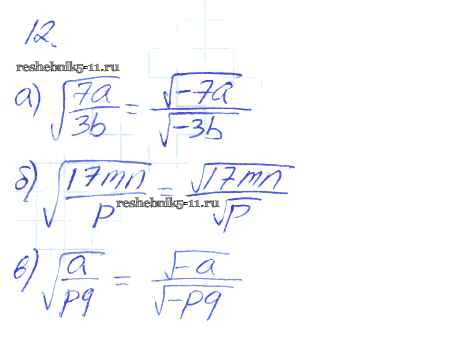 12.
reshebnik5-11.ru
а) √(7a/3b) = √(-7a)/√(-3b)
б) √(17mn/p) = √(17mn)/√p
reshebnik5-11.ru
в) √(a/pq) = √(-a)/√(-pq)